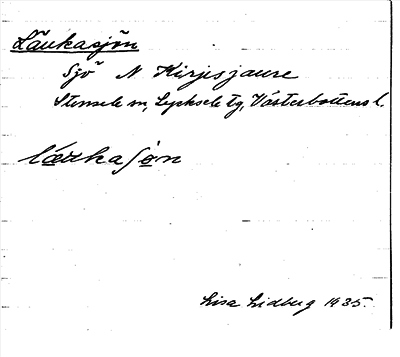 Laukasjön
Sjö N Kirjisjaure
Stensele sn, Lycksele tg, Västerbottens l.
Lisa Lidberg 1935.